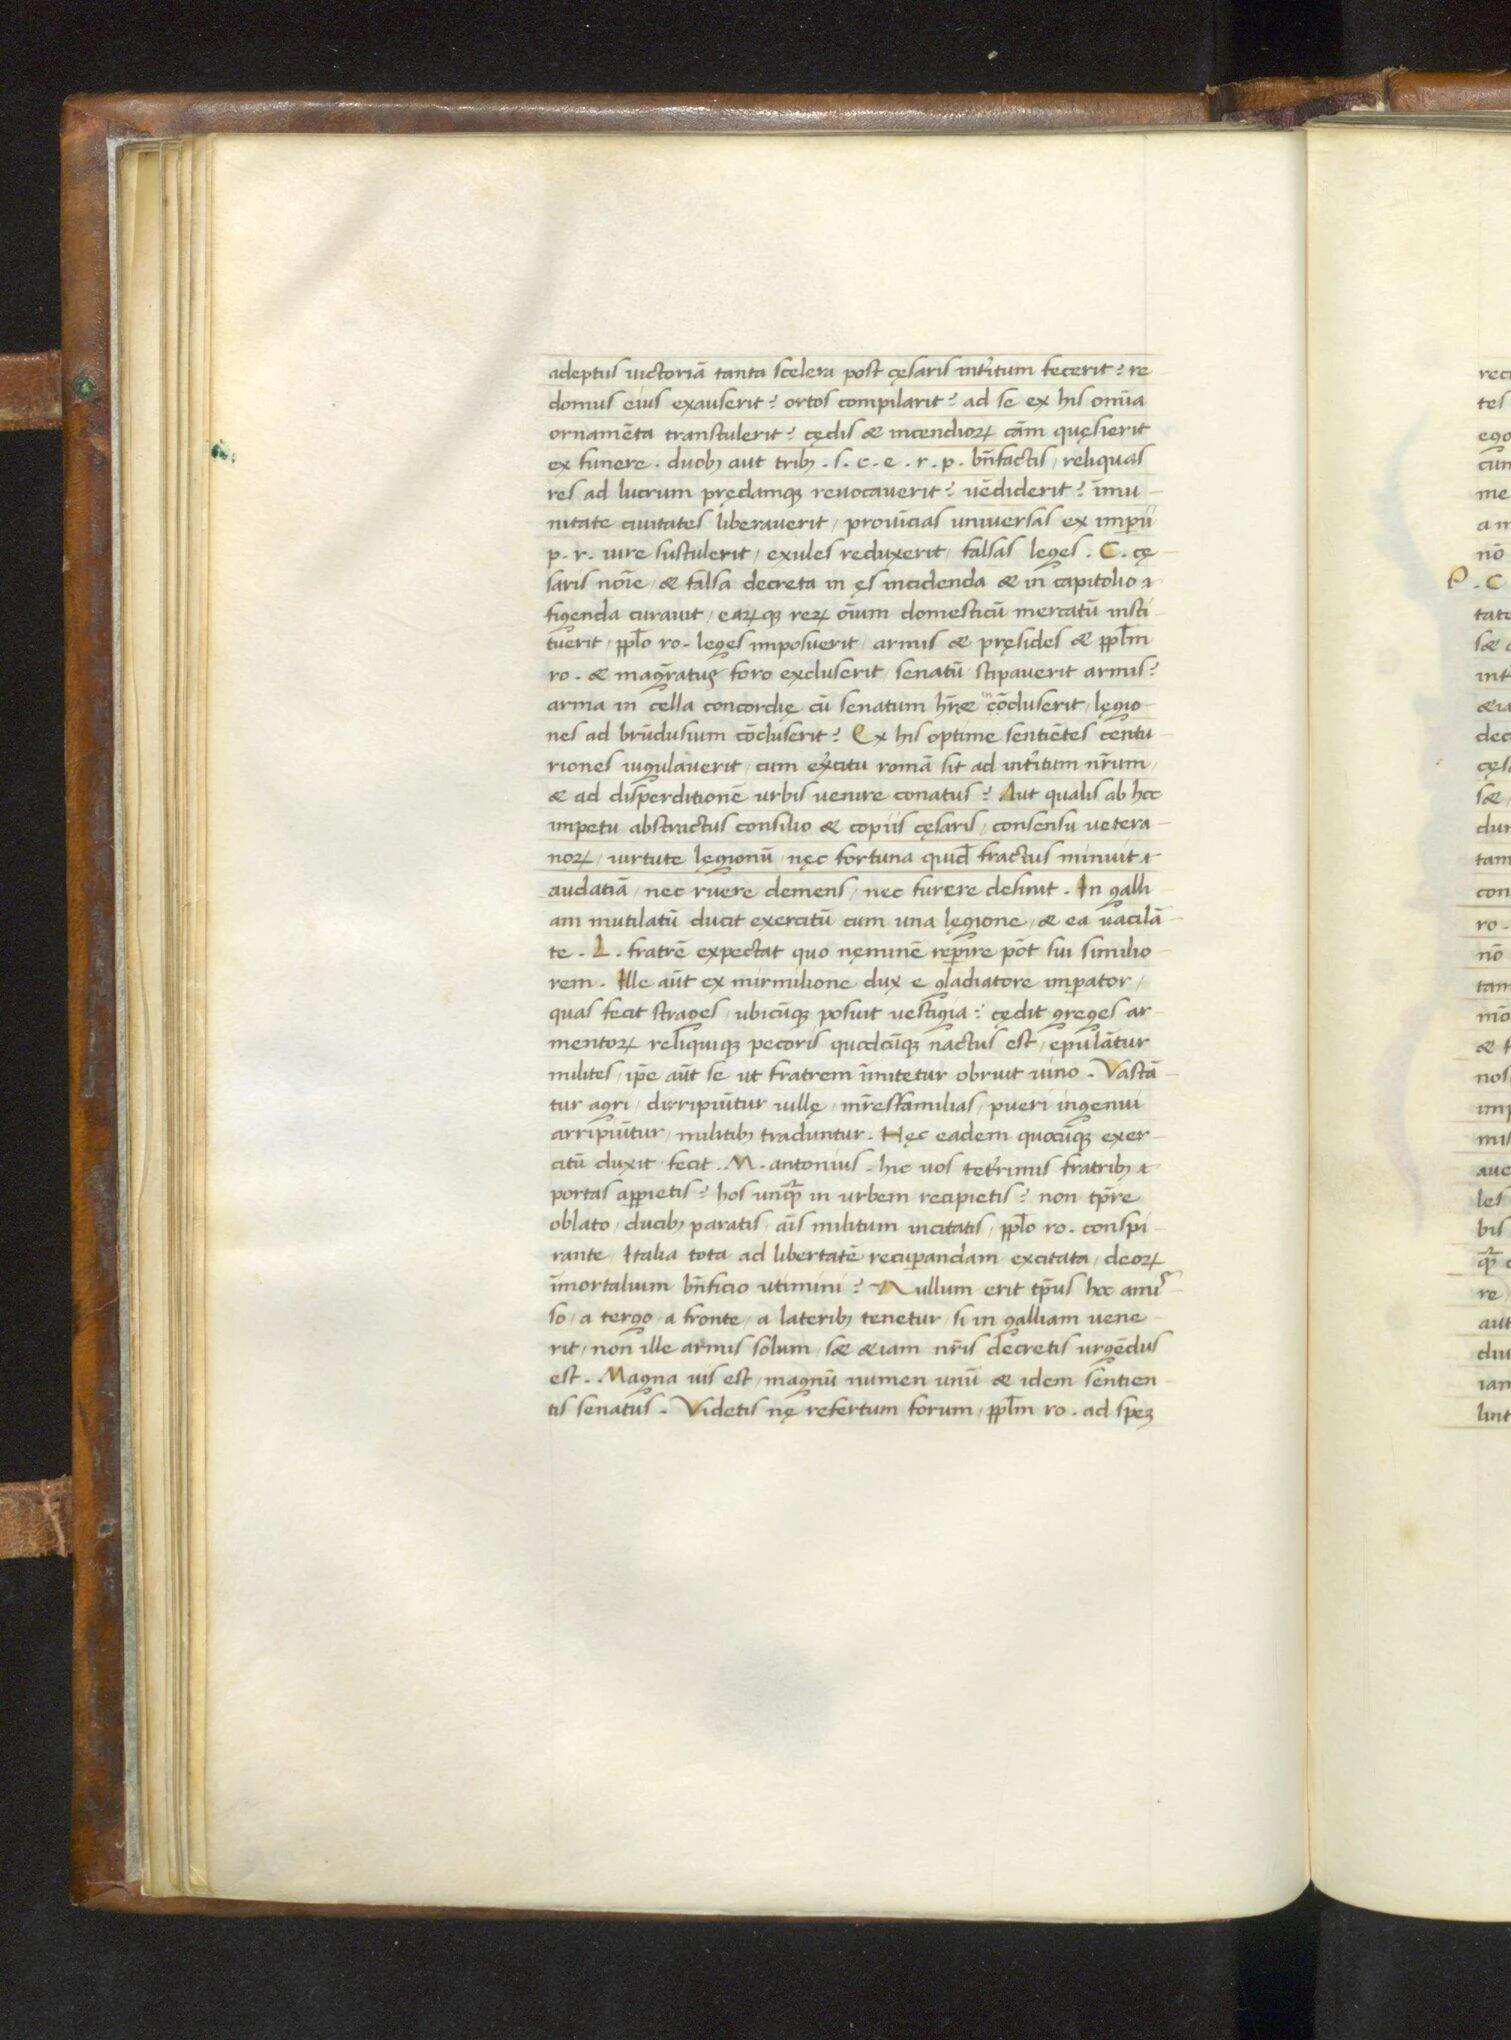 adeptus uictoriā tanta scelera post cęsaris int̄itum fecerit? re
domus eius exauserit? ortos compilarit? ad se ex his om̄ia
ornamēta transtulerit? cędis & incendioꝝ cām quęsierit
ex funere . duobꝫ aut tribꝫ . s . c . e . r . p . bn̄factis / reliquas
res ad lucrum prędamqꝫ reuocauerit? uēdiderit? īmu
nitate ciuitates liberauerit / prouīcias universas ex imperii
p . r . iure sustulerit / exules reduxerit / falsas leges . C . cę
saris noīe / & falsa decreta in ęs incidenda & in capitolio
figenda curauit / eaꝝqꝫ reꝝ oīum domesticū mercatū insti
tuerit / pp̄lo ro . leges imposuerit / armis & pręsides & pp̄lm
ro . & magr̄atus foro excluserit / senatū stipauerit armis?
arma in cella concordię cū senatum hr̄& in cōcluserit / lęgio
nes ad brūdusium cōcluserit? Ex his optime sentiētes centu
riones iugulauerit / cum ex̄citu romā sit ad int̄itum nr̄um /
& ad disperditionē urbis uenire conatus? Aut qualis ab hoc
impetu abstractus consilio & copiis cęsaris / consensu uetera
noꝝ / uirtute lęgionū / nęc fortuna quid̄ fractus minuit
audatiā / nec ruere demens / nec furere desinit . In galli
am mutilatū ducit exercitū cum una lęgione / & ea uacilā
te . L . fratrē expectat quo nęminē rep̱ire pōt sui similio
rem . Ille aūt ex mirmilione dux e gladiatore imp̱ator /
quas fecit strages / ubicūqꝫ posuit uestigia? cędit greges ar
mentoꝝ reliquiqꝫ pecoris quodcūqꝫ nactus est / epulātur
milites / ip̄e aūt se ut fratrem īmitetur obruit uino . Vastā
tur agri / dirripiūtur uillę / mr̄esfamilias / pueri ingenui
arripiūtur / militibꝫ traduntur . Hęc eadem quocūqꝫ exer
citū duxit fecit . M . antonius . hic uos tet̄rimis fratribꝫ
portas app̱ietis? hos unqᷓ in urbem recipietis? non tp̄re
oblato / ducibꝫ paratis / aīs militum incitatis / pp̄lo ro . conspi
rante / Italia tota ad libertatē recup̱andam excitata / deoꝝ
īmortalium bn̄ficio utimini? Nullum erit tp̄us hoc amis
so / a tergo / a fronte / a lateribꝫ tenetur / si in galliam uene
rit / non ille armis solum / s& &iam nr̄is decretis urgēdus
est . Magna uis est / magnū numen unū & idem sentien
tis senatus . Videtis nę refertum forum / pp̄lm ro . ad speꝫ